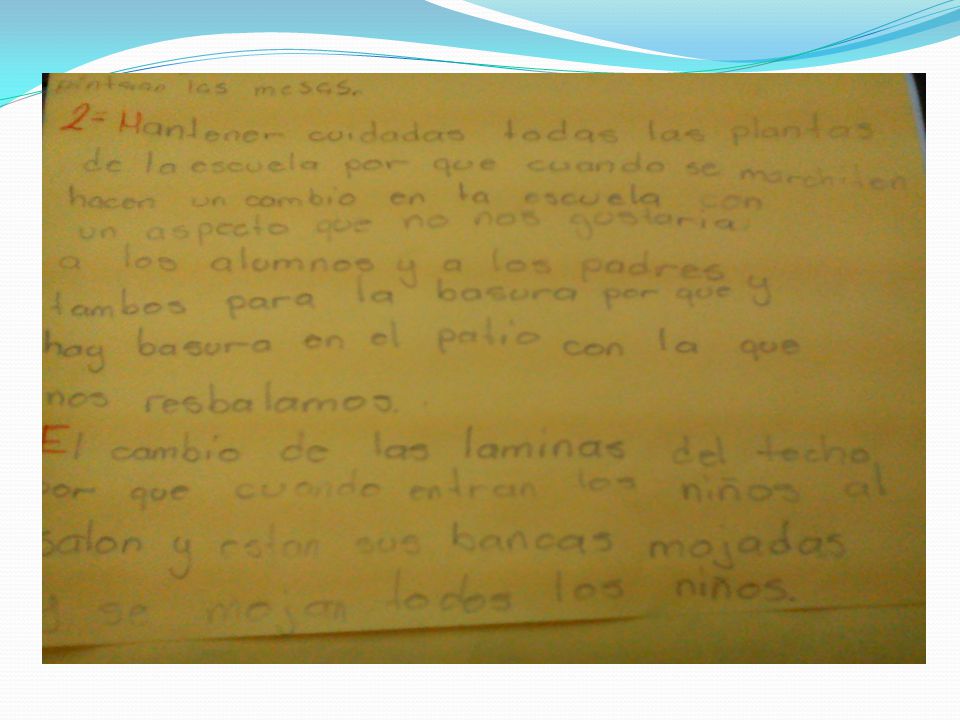 pintaran las mesas.
2= Mantener cuidadas todas las plantas
de la escuela por que cuando se marchiten
hacen un cambio en la escuela con
un aspecto que no nos gustaria
a los alumnos y a los padres y
tambos para la basura por que y
hay basura en el patio con la que
nos resbalamos.
El cambio de las laminas del techo
por que cuando entran los niños al
salon y estan sus bancas mojadas
y se mojan todos los niños.